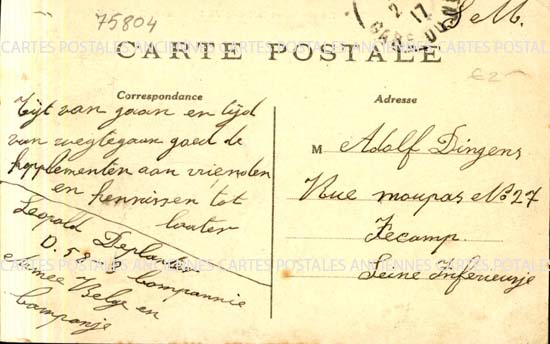 75804
S. M.
2 17
GARE DU
CARTE POSTALE
CARTES POSTALES ANCIENNES CARTES POSTALES ANCIENNES CARTES POSTALES
€2-
Correspondance
Tijt van gaan en tijd
van wegtegaan goed de
komplementen aan vrienden
en kennissen tot
laater
Leopold
D. 58 compannie
armee Belge en
Campanje
Adresse
M Adolf Dingens
Rue moupas No 27
Fecamp.
Seine Inferieurje
CARTES POSTALES ANCIENNES CARTES POSTALES ANCIENNES